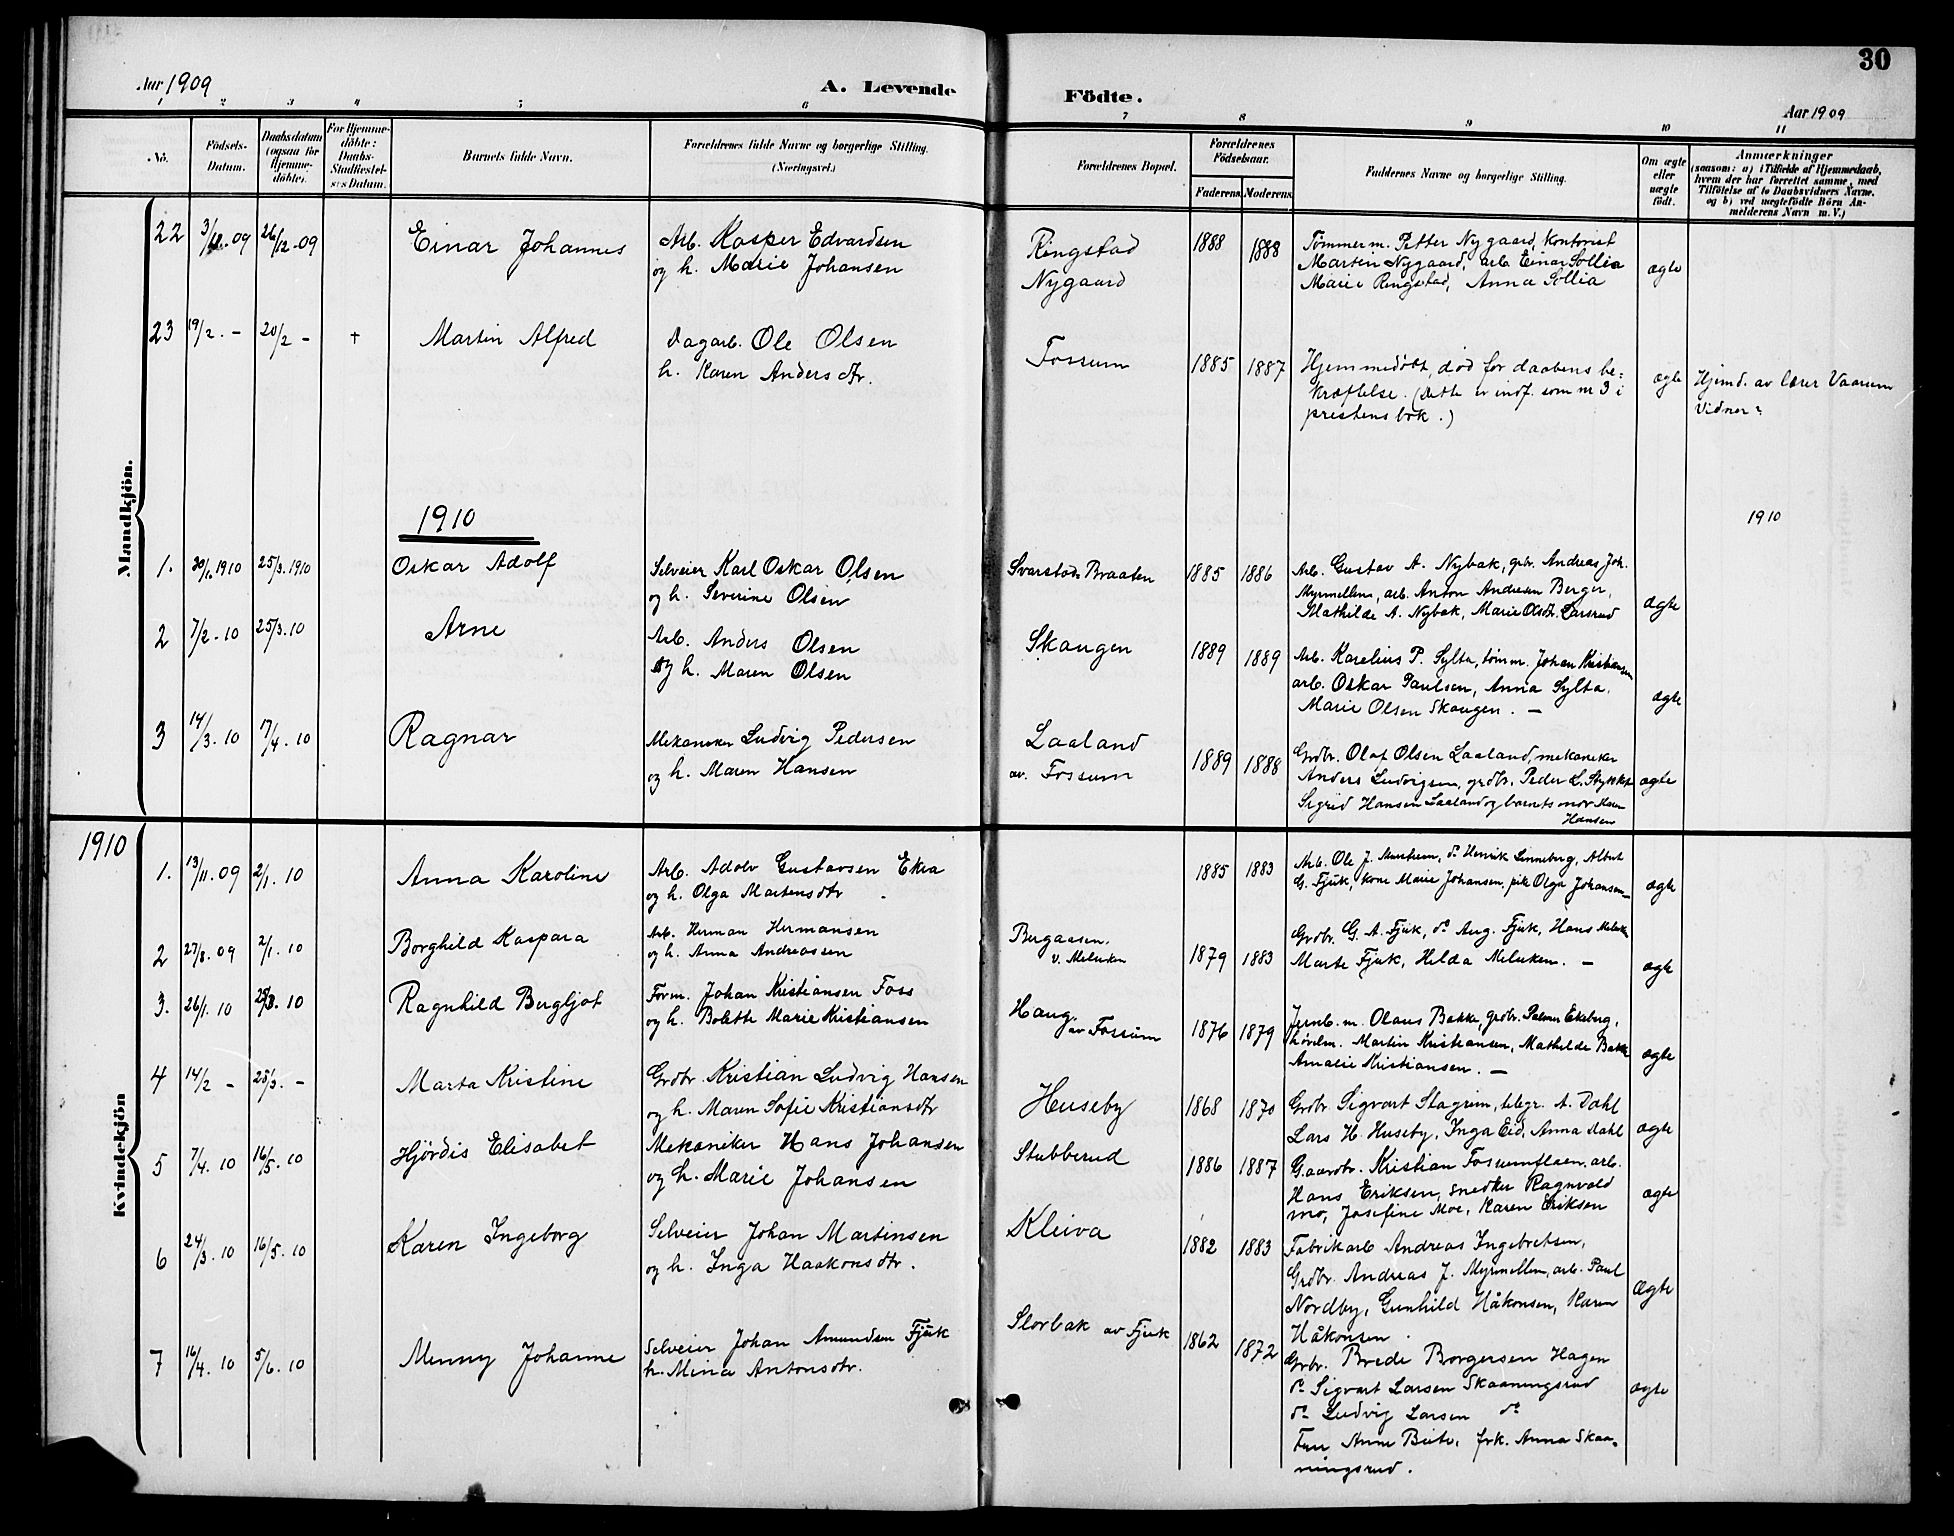 30
Aar 1909
A. Levende
Födte.
Aar 1909
1 2 3 4 5 6 7 8 9 10 11
No.
Födsels-
Datum.
Daabsdatum
(ogsaa for
Hjemme-
döbte).
For Hjemme-
döbte:
Daabs-
Stadfæstel-
ses Datum.
Barnets fulde Navn.
Forældrenes fulde Navne og borgerlige Stilling.
(Næringsvei.)
Forældrenes Bopæl.
Forældrenes
Födselsaar.
Faderens. Moderens.
Faddernes Navne og borgerlige Stilling.
Om ægte
eller
uægte
födt.
Anmærkninger
(saasom: a) i Tilfælde af Hjemmedaab,
hvem der har forrettet samme, med
Tilföielse af to Daabsvidners Navne.
og b) ved uægtefödte Börn An-
melderens Navn m. V.)
Mandkjön.
22 3/12.09 26/12.09 Einar Johannes
Arb. Kasper Edvardsen
og h. Marie Johansen
Ringstad
Nygaard
1888 1888
Tømmerm. Petter Nygaard, kontorist
Martin Nygaard, arb. Einar Sollia
Marie Ringstad, Anna Sollia
ægte
23 19/2.- 20/2 - + Martin Alfred
Dagarb. Ole Olsen
h. Karen Andersdtr.
Fossum
1885 1887
Hjemmedøbt, død før daabens be-
kræftelse. (Dette er indf. som nr 3 i
prestens bok.)
ægte
Hjemd. av lærer Vaarum
Vidner?
1910
1910
1. 30/1.1910 25/3.1910 Oskar Adolf
Selveier Karl Oskar Olsen
og h. Severine Olsen
Svarstads Braaten
1885 1886
Arb. Gustav A. Nybak, gbr. Andreas Joh.
Myrmellem, arb. Anton Andresen Berger,
Mathilde A. Nybak, Marie Olsdtr. Larsrud
ægte
2 7/2.10 25/3.10 Arne
Arb. Anders Olsen
og h. Maren Olsen
Skaugen
1889 1889
Arb. Karelius P. Sylta, tømm. Johan Kristiansen
arb. Oskar Paulsen, Anna Sylta,
Marie Olsen Skaugen. —
ægte
3 14/3.10 17/4.10 Ragnar
Mekaniker Ludvig Pedersen
og h. Maren Hansen
Laaland
av. Fossum
1889 1888
Grdbr. Olaf Olsen Laaland, mekaniker
Anders Ludvigsen, grdbr. Peder L.
Sigrid Hansen Laaland og barnets mor Maren
Hansen
ægte
1910
Kvindekjön
1. 13/11.09 2/1.10 Anna Karoline
Arb. Adolv Gustavsen Ekra
og h. Olga Martensdtr.
1885 1883
Arb. Ole J. , do Henrik Linneberg, Albert
G. Fjuk, kone Marie Johansen, pike Olga Johansen —
ægte
2 27/8.09 2/1.10 Borghild Kaspara
Arb. Herman Hermansen
og h. Anna Andreassen
Bergaasen.
v. Meluken
1879 1883
Grdbr. G. A. Fjuk, do Aug. Fjuk, Hans Meluken
Marte Fjuk, Helda Meluken. —
ægte
3. 26/1.10 25/3.10 Ragnhild Bergljot
Form. Johan Kristiansen Foss
og h. Bolette Marie Kristiansen
Haug.
av Fossum
1876 1879
Jernb.m. Olaus Bakke, grdbr. Palmer Ekeberg,
høvlm. Martin Kristiansen, Mathilde Bakke
Amalie Kristiansen. —
ægte
4 14/2 - 25/3.- Marta Kristine
Grdbr. Kristian Ludvig Hansen
og h. Maren Sofie Kristiansdtr
Huseby
1868 1870
Grdbr. Sigvart Slagrim, telegr. A. Dahl
Lars H. Huseby, Inga Eid, Anna Dahl
ægte
5 7/4.10 16/5.10 Hjørdis Elisabet
Mekaniker Hans Johansen
og h. Marie Johansen
Stubberud
1886 1887
Gaardbr. Kristian Fossumflaen, arb.
Hans Eriksen, snedker Ragnvald
mo, Josefine Moe, Karen Eriksen
ægte
6 24/3.10 16/5.10 Karen Ingeborg
Selveier Johan Martinsen
og h. Inga Haakonsdtr.
Kleiva
1882 1883
Fabrikarb Andreas Ingebretsen,
Grdbr. Andreas J. Myrmellem, arb. Paul
Nordby, Gunhild Håkonsen, Karen
Håkonsen.
Ægte
7 16/4.10 5/6.10 Menny Johanne
Selveier Johan Amundsen Fjuk
h. Mina Antonsdtr.
Slorbak av Fjuk
1862 1872
Grbr. Brede Borgersen Hagen
do Sigvart Larsen Skaaningsrud
do Ludvig Larsen do
Fru Anne Bute, frk. Anna Skaa-
ningsrud.
ægte